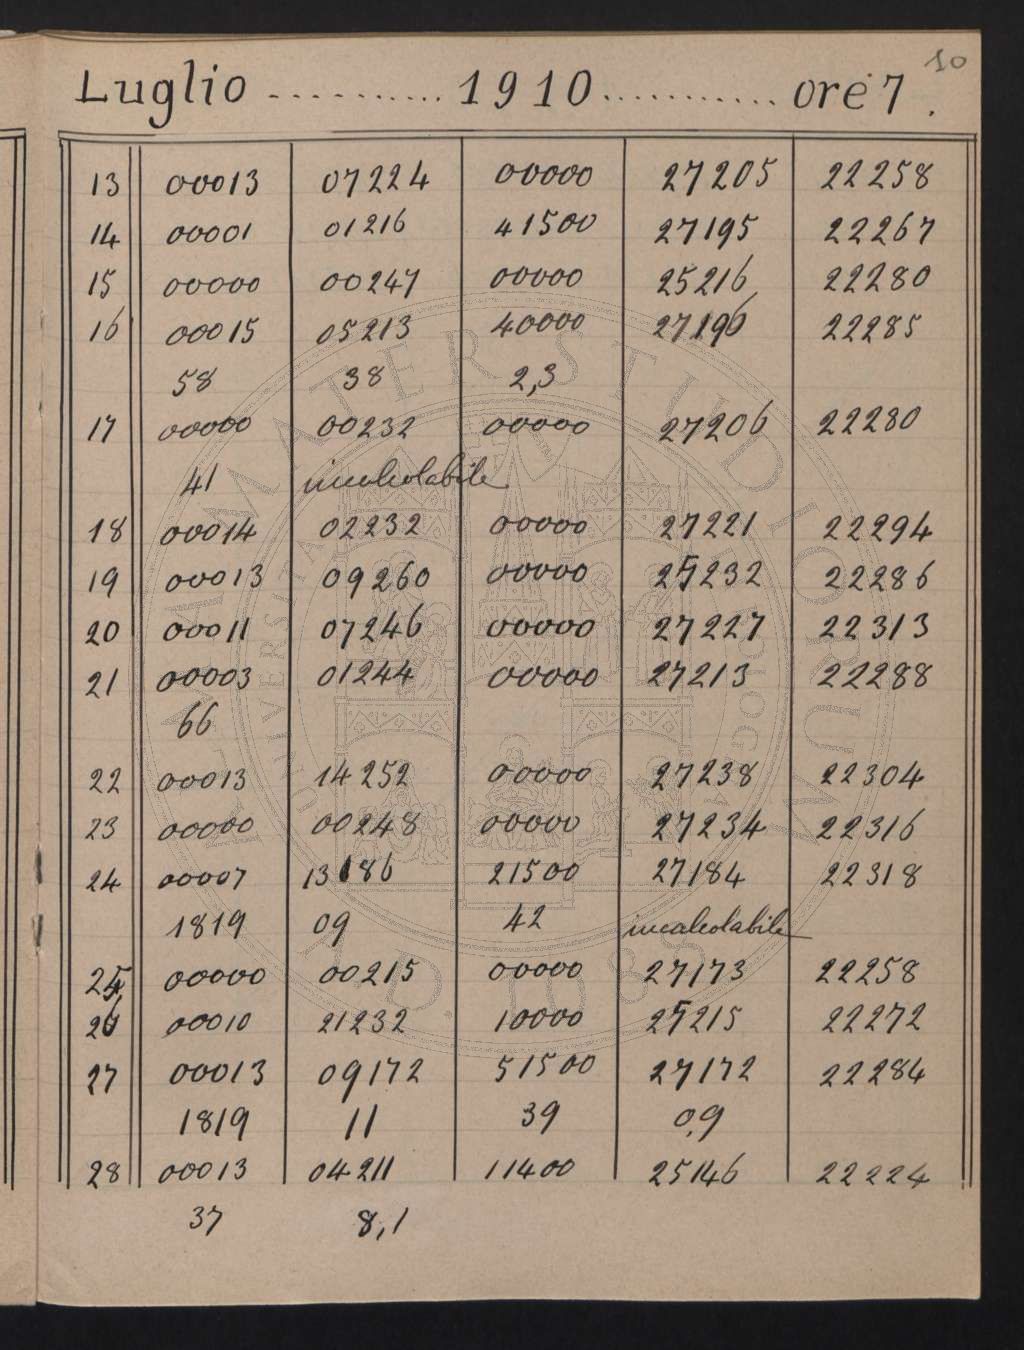 10
Luglio .......... 1910 .......... ore 7.
13 00013 07224 00000 27205 22258
14 00001 01216 41500 27195 22267
15 00000 00247 00000 25216 22280
16 00015 05213 40000 27196 22285
58 38 2,3
17 00000 00232 00000 27206 22280
41 incalcolabile
18 00014 02232 00000 27221 22294
19 00013 09260 00000 232 22286
20 00011 07246 00000 27227 22313
21 00003 01244 00000 27213 22288
66
22 00013 14252 00000 27238 22304
23 00000 00248 00000 27234 22316
24 00007 13186 21500 27184 22318
1819 09 42 incalcolabile
25 00000 00215 00000 27173 22258
26 00010 21232 10000 215 22272
27 00013 09172 51500 27172 22284
1819 11 39 0,9
28 00013 04211 11400 25146 22224
37 8,1
ALMA MATER STUDIORUM
UNIVERSITÀ DI BOLOGNA
A.D. 1088